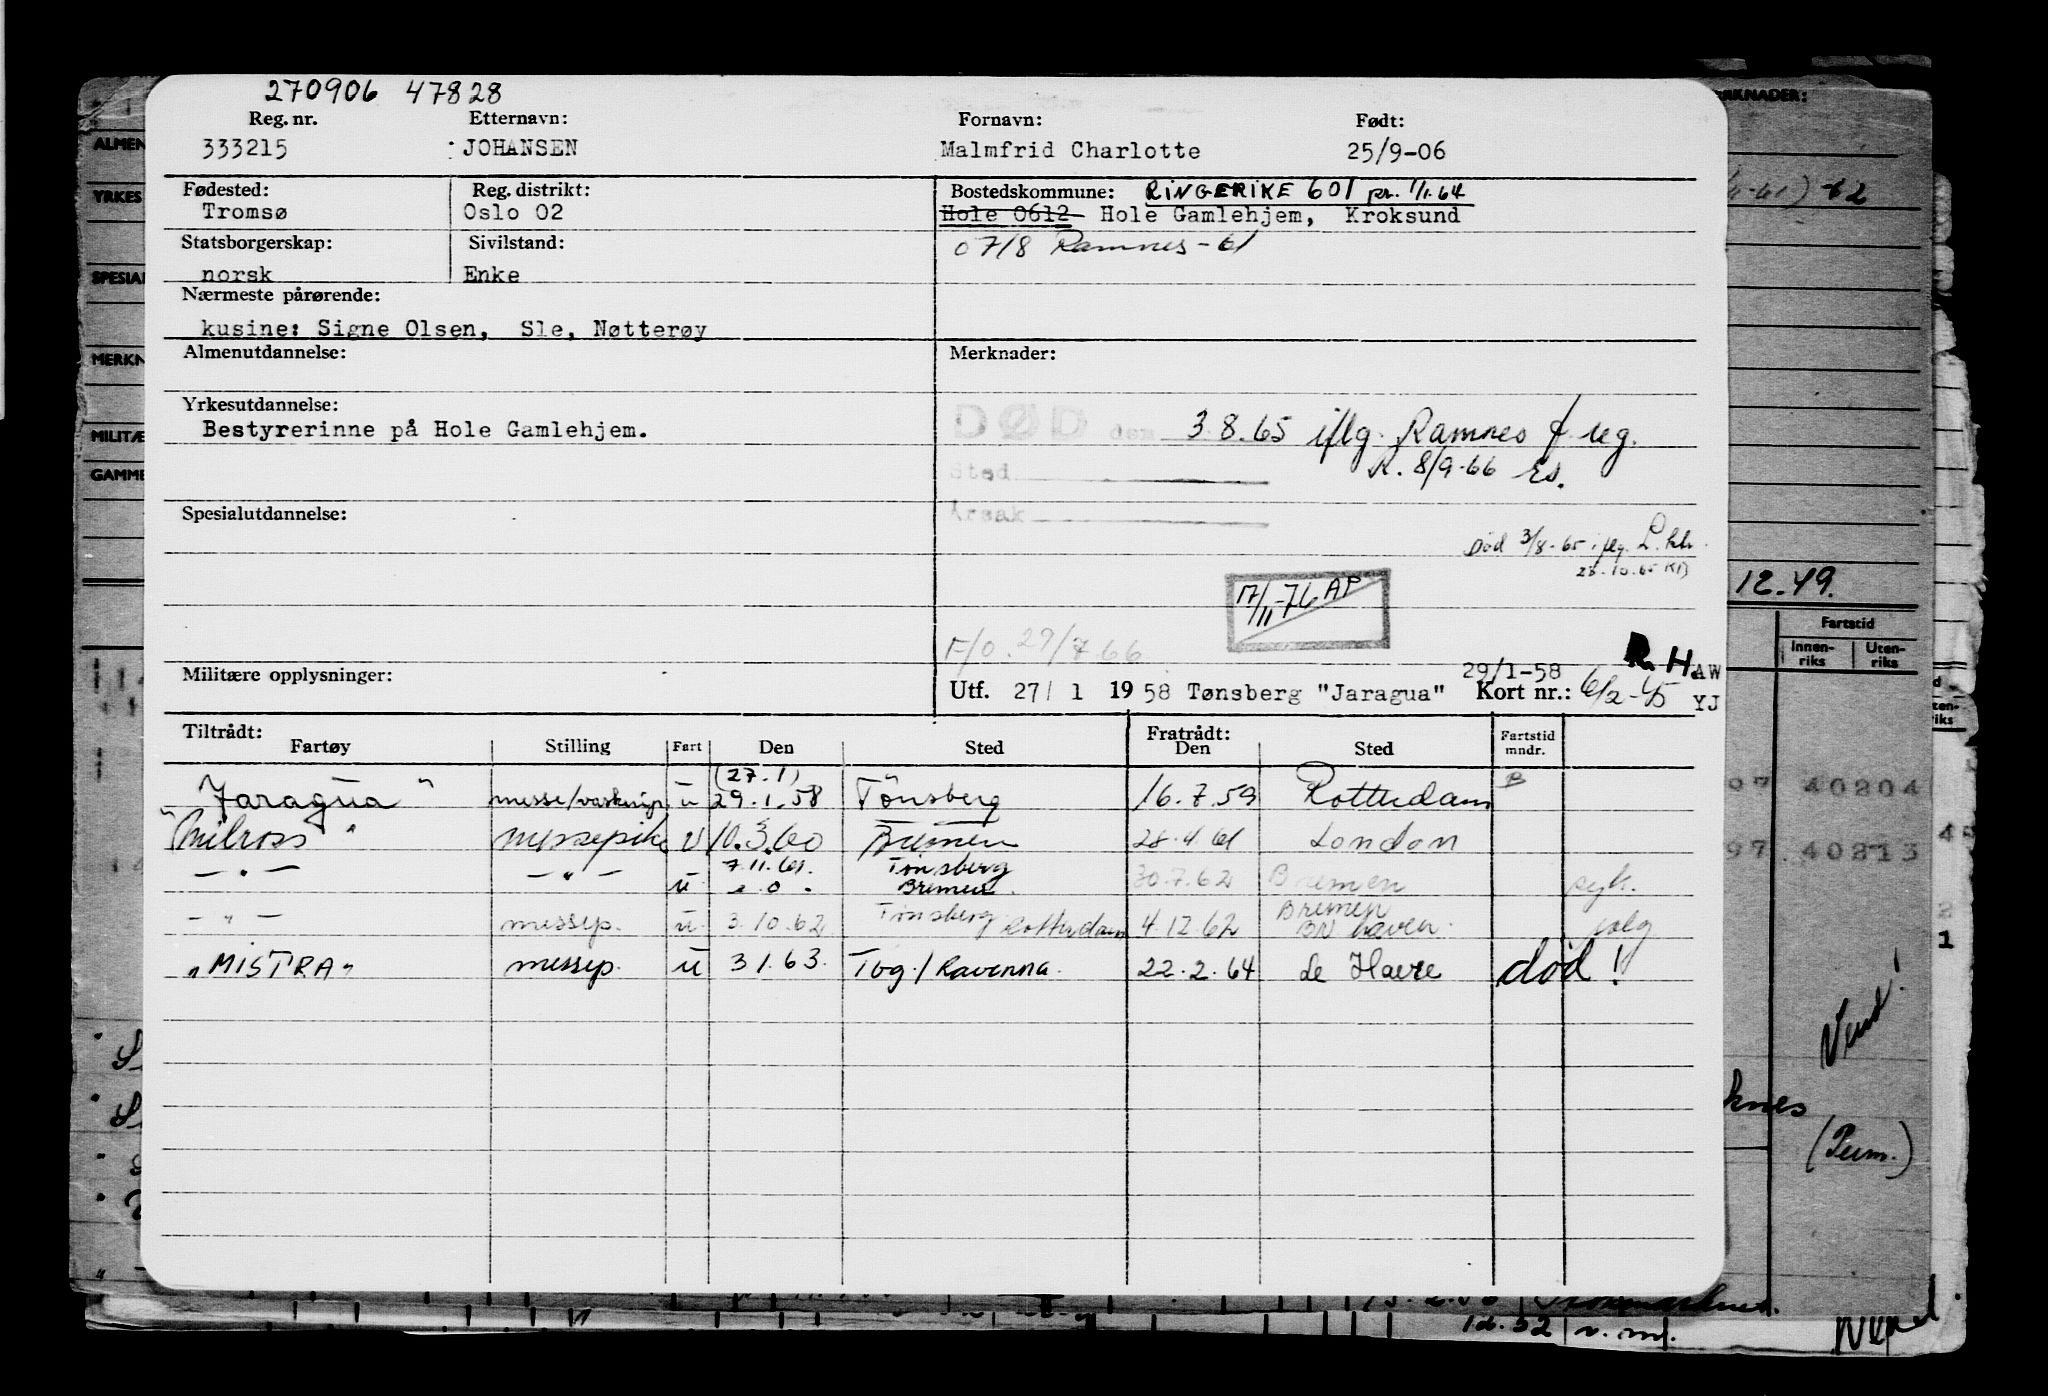 270906 47828
Reg. nr. Etternavn: Fornavn: Født:
333215 JOHANSEN Malmfrid Charlotte 25/9-06
Fødested: Reg. distrikt: Bostedskommune: RINGERIKE 601 pr. 1/1.64
Tromsø Oslo 02 Hole 0612 Hole Gamlehjem, Kroksund
Statsborgerskap: Sivilstand: 0718 Ramnes-61
norsk Enke
Nærmeste pårørende:
kusine: Signe Olsen, Sle, Nøtterøy
Almenutdannelse: Merknader:
Yrkesutdannelse:
Bestyrerinne på Hole Gamlehjem.
DØD den 3.8.65 iflg. Ramnes f reg.
Sted R. 8/9-66 Es.
Årsak
Spesialutdannelse:
Død 3/8-65 iflg. L.kk.
28.10.65 KD
17/11-76 AP
F/O. 29/7.66
Militære opplysninger:
R. H. AW
29/1-58
Utf. 27/ 1 1958 Tønsberg "Jaragua" Kort nr.: 6/2-45 YJ
Tiltrådt: Fratrådt:
Fartøy Stilling Fart Den Sted Den Sted Fartstid mndr.
(27.1)
"Jaragua" u 29.1.58 Tönsberg 16.7.59 Rotterdam B
"Milross" messepike u 10.3.60 Bremen 28.4.61 London
7.11.61. Tönsberg
— " — — " — u Bremen. 30.7.62 Bremen syk.
— " — messep. u 3.10.62 Tönsberg Rotterdam 4.12.62 Bremen BR haven.
"MISTRA" messep. u 3 1.63. Tbg./Ravenna. 22.2.64 Le Havre død!
ALMEN
YRKES
SPESIAL
MERKN
MILITÆ
GAMME
RKNADER:
12.49.
Fartstid
Innen-riks Uten-riks
97 40204
97. 40213
Vend!
knes
(Perm.)
12.52 v.m.